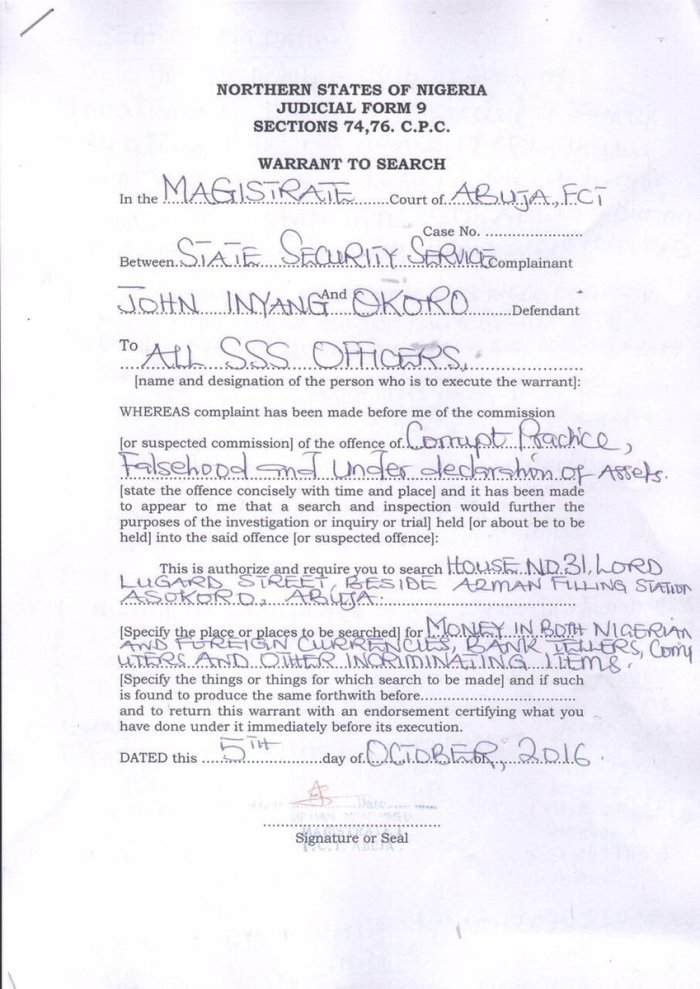 NORTHERN STATES OF NIGERIA
JUDICIAL FORM 9
SECTIONS 74,76. C.P.C.
WARRANT TO SEARCH
In the MAGISTRATE Court of ABUJA, FCT
Case No. ....................
Between STATE SECURITY SERVICE Complainant
And
JOHN INYANG OKORO Defendant
To ALL SSS OFFICERS,
[name and designation of the person who is to execute the warrant]:
WHEREAS complaint has been made before me of the commission
[or suspected commission] of the offence of Corrupt Practice,
Falsehood and Under declaration of Assets.
[state the offence concisely with time and place] and it has been made
to appear to me that a search and inspection would further the
purposes of the investigation or inquiry or trial] held [or about be to be
held] into the said offence [or suspected offence]:
This is authorize and require you to search HOUSE NO.31, LORD
LUGARD STREET, BESIDE A2MAN FILLING STATION
ASOKORO, ABUJA.
[Specify the place or places to be searched] for MONEY IN BOTH NIGERIAN
AND FOREIGN CURRENCIES, BANK TELLERS, COMP
UTERS AND OTHER INCRIMINATING ITEMS.
[Specify the things or things for which search to be made] and if such
is found to produce the same forthwith before....................
and to return this warrant with an endorsement certifying what you
have done under it immediately before its execution.
DATED this 5TH day of OCTOBER, 2016.
Date
MAGISTRATE I
Signature or Seal